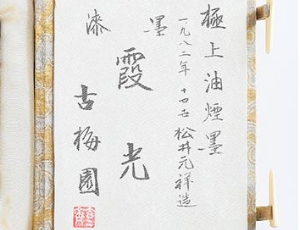 極上油煙墨
一九八二年 十四世 松井元祥造
墨
霞光
漆
古梅園